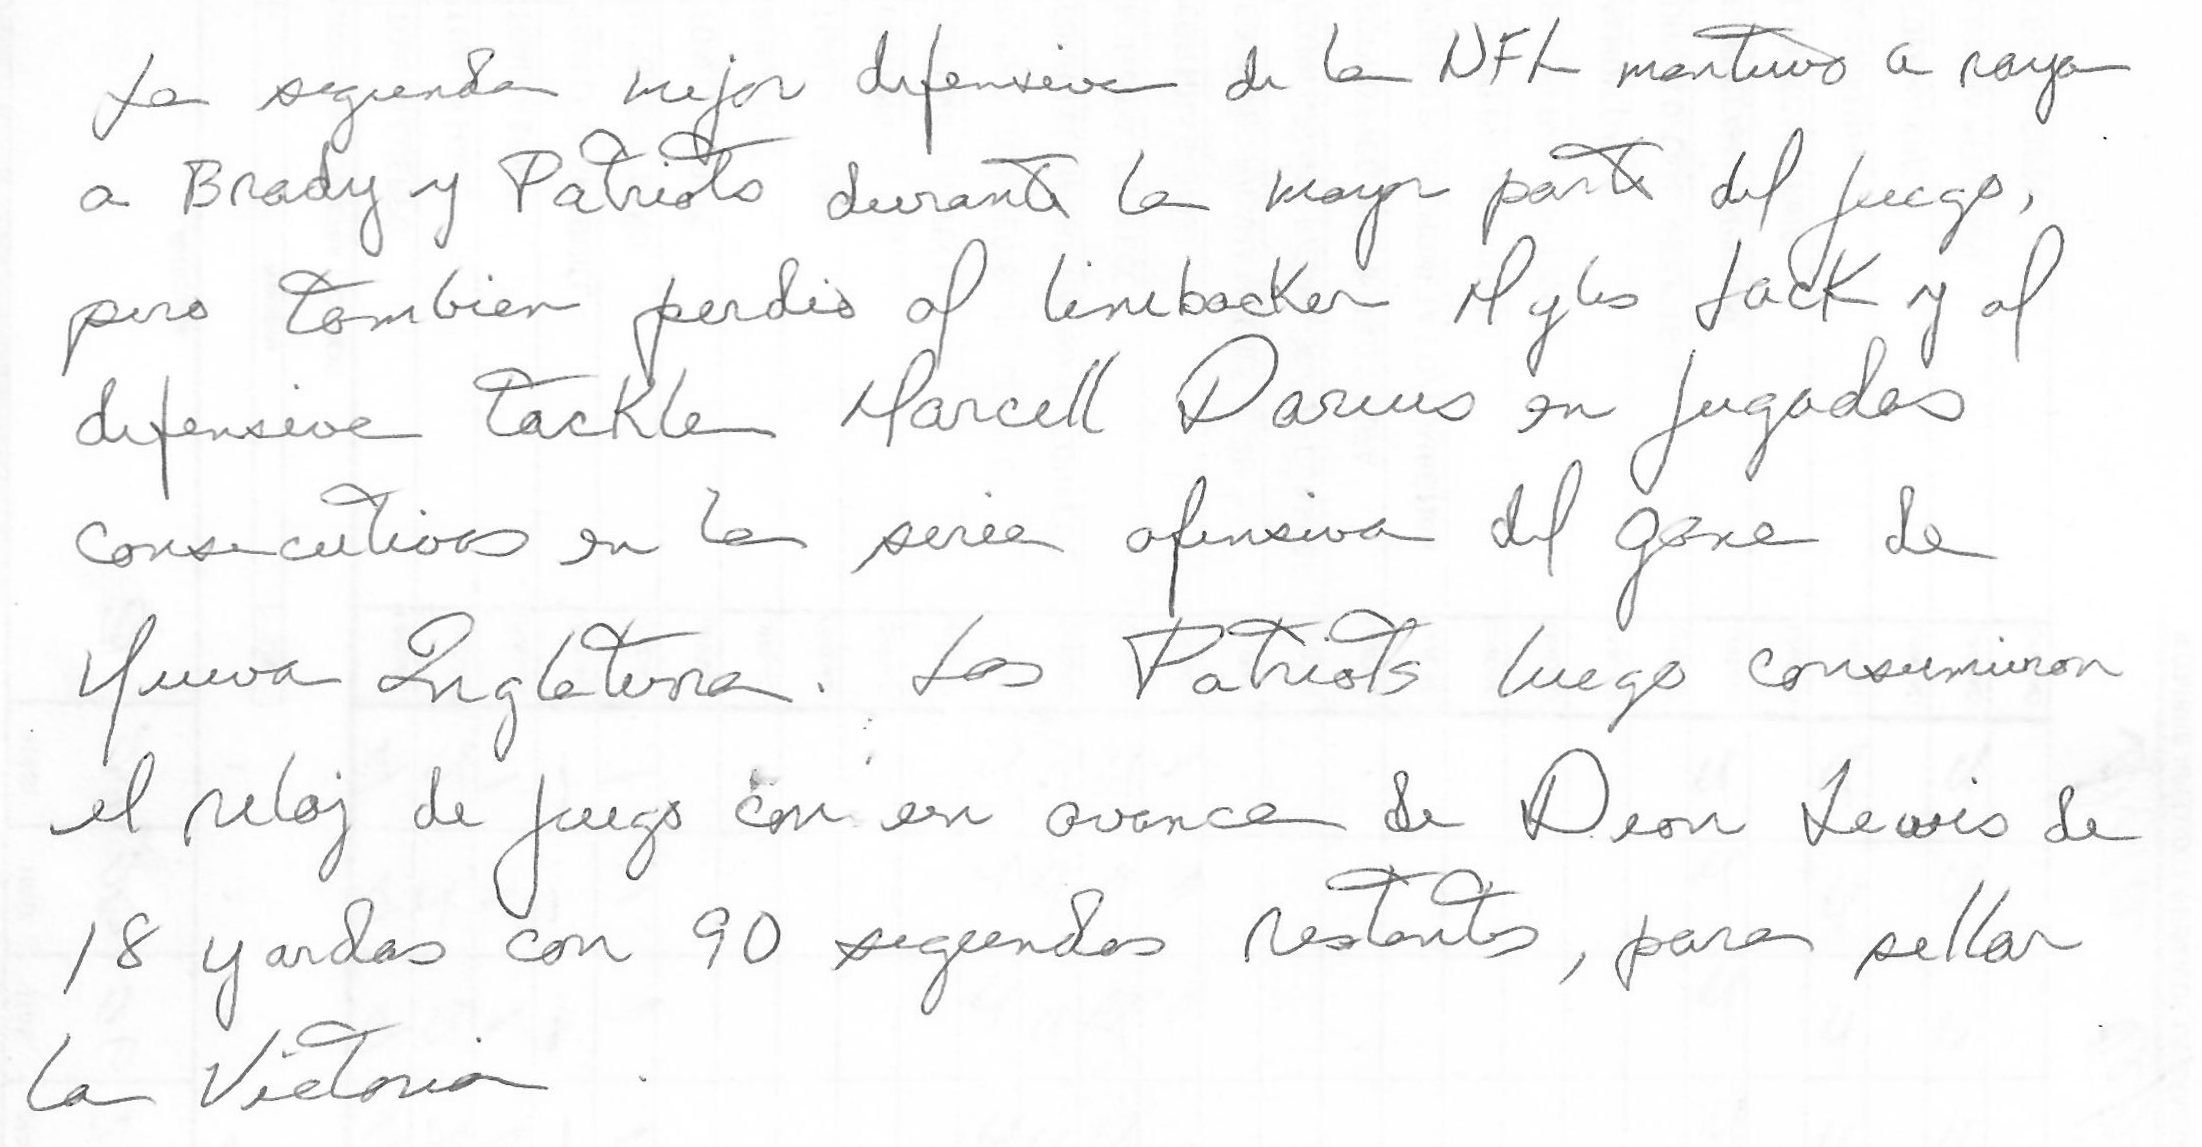 La segunda mejor defensiva de la NFL mantuvo a raya
a Brady y Patriots durante la mayor parte del juego,
pero tambien perdio al linebacker Myles Jack y al
defensive tackle Marcell Darius en jugadas
consecutivas en la serie ofensiva del gane de
Nueva Inglaterra. Los Patriots luego consumieron
el reloj de juego con un avance de Deon Lewis de
18 yardas con 90 segundos restantes, para sellar
la Victoria.